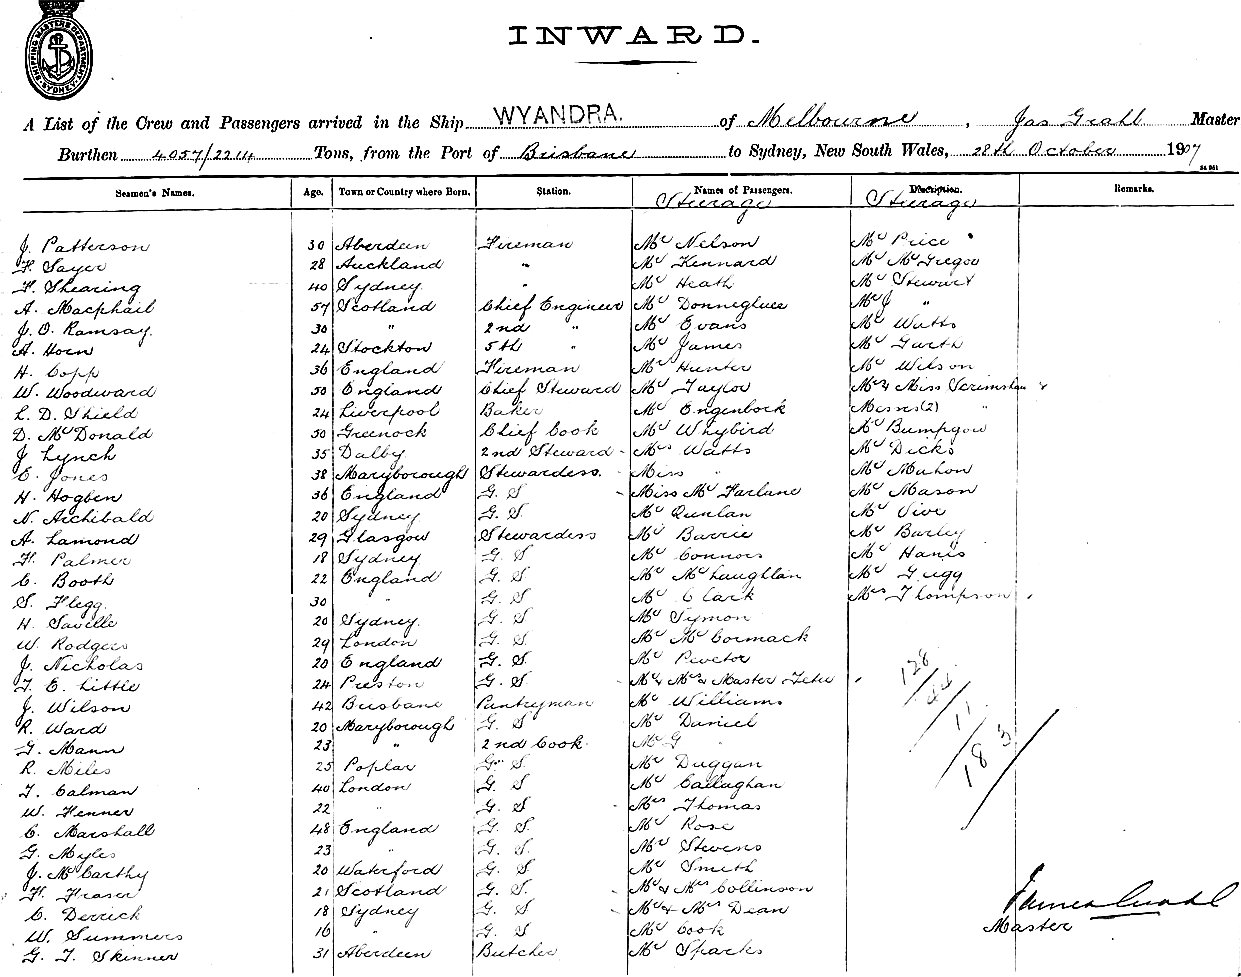 SHIPPING MASTERS DEPARTMENT SYDNEY
INWARD.
A List of the Crew and Passengers arrived in the Ship WYANDRA. of Melbourne, Jas Grahl Master
Burthen 4057/2214 Tons, from the Port of Brisbane to Sydney, New South Wales, 28th October 1907
Seamen's Names. Age. Town or Country where Born. Station. Names of Passengers. Description. Remarks.
Steerage Steerage
J. Patterson 30 Aberdeen Fireman Mr Nelson Mr Price
F. Sayer 28 Auckland " Mr Kennard Mr McGregor
F. Shearing 40 Sydney " Mr Heath Mr Stewart
A. Macphail 57 Scotland Chief Engineer Mr Donneghue Mr J "
J. O. Ramsay. 30 " 2nd " Mr Evans Mr Watts
A. Horn 24 Stockton 5th " Mr James Mr Garth
H. Copp 36 England Fireman Mr Hunter Mr Wilson
W. Woodward 50 England Chief Steward Mr Taylor Mr & Miss Scrimshaw
L. D. Shield 24 Liverpool Baker Mr Engenbock Misses (2) "
D. McDonald 50 Greenock Chief Cook Mr Whybird Mr Bumpgow
J Lynch 35 Dalby 2nd Steward Mrs Watts Mr Dicks
C. Jones 38 Maryborough Stewardess. Miss " Mr Mahon
H. Hogben 36 England G. S Miss McFarlane Mr Mason
N. Archibald 20 Sydney G. S Mr Qunlan Mr Vive
A. Lamond 29 Glasgow Stewardess Mr Barrie Mr Burley
F. Palmer 18 Sydney G. S Mr Connors Mr Hanis
C. Booth 22 England G. S Mr McLaughlan Mr Grigg
S. Flegg. 30 " G. S Mr Clark Mrs Thompson
H. Saville 20 Sydney. G. S Mr Symon
W. Rodgers 29 London G. S Mr McCormack
J. Nicholas 20 England G. S. Mr Proctor
T. E. Little 24 Preston G. S Mr & Mrs & Master
J. Wilson 42 Brisbane Pantryman Mr Williams
R. Ward 20 Maryborough G. S Mr Daniel
G. Mann 23 " 2nd Cook Mr G "
R. Miles 25 Poplar G. S. Mr Duggan
T. Calman 40 London G. S Mr Callaghan
W. Fenner 22 " G. S Mrs Thomas
C. Marshall 48 England G. S. Mr Rose
G. Myles 23 " G. S. Mr Stevens
J. McCarthy 20 Waterford G. S. Mr Smith
F. Fraser 21 Scotland G. S. Mr & Mrs Collinson
C. Derrick 18 Sydney G. S Mr & Mrs Dean
W. Summers 16 " G. S Mr Cook
G. T. Skinner 31 Aberdeen Butcher Mr Sparks
128/44/11/183
James Grahl
Master